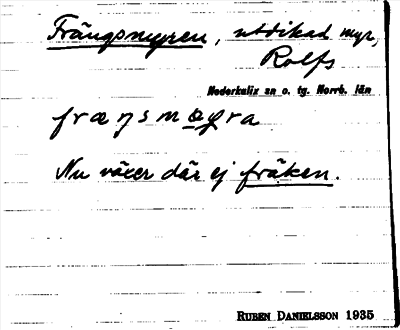 Frängsmyren, utdikad myr,
Rolfs
Nederkalix sn o. tg. Norrb. län
Nu växer där ej fräken.
RUBEN DANIELSSON 1935